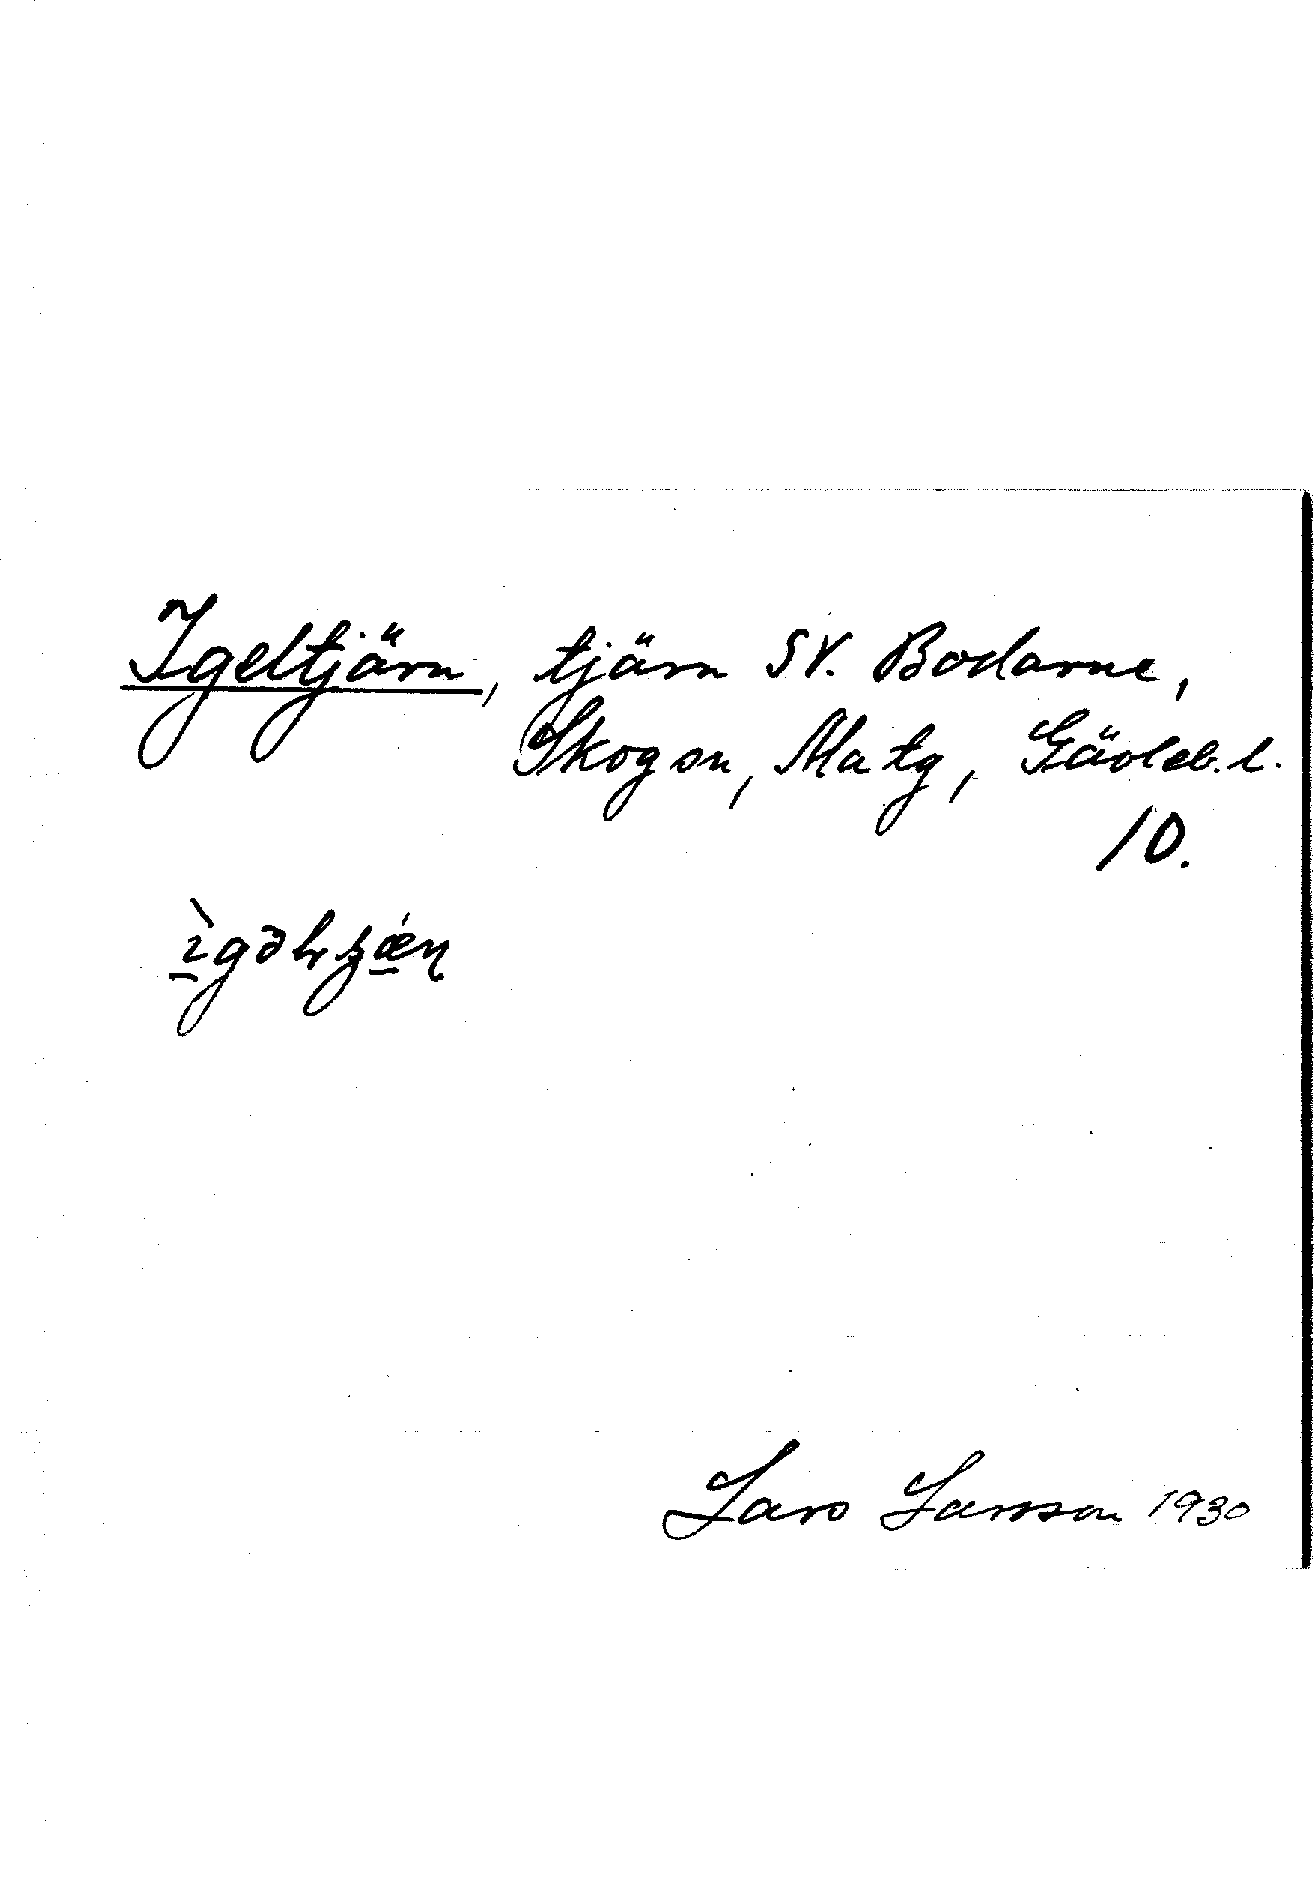 Igeltjärn, tjärn SV. Bodarne,
Skogsn, Matg, Gävleb. l.
10.
Lars Larsson 1930